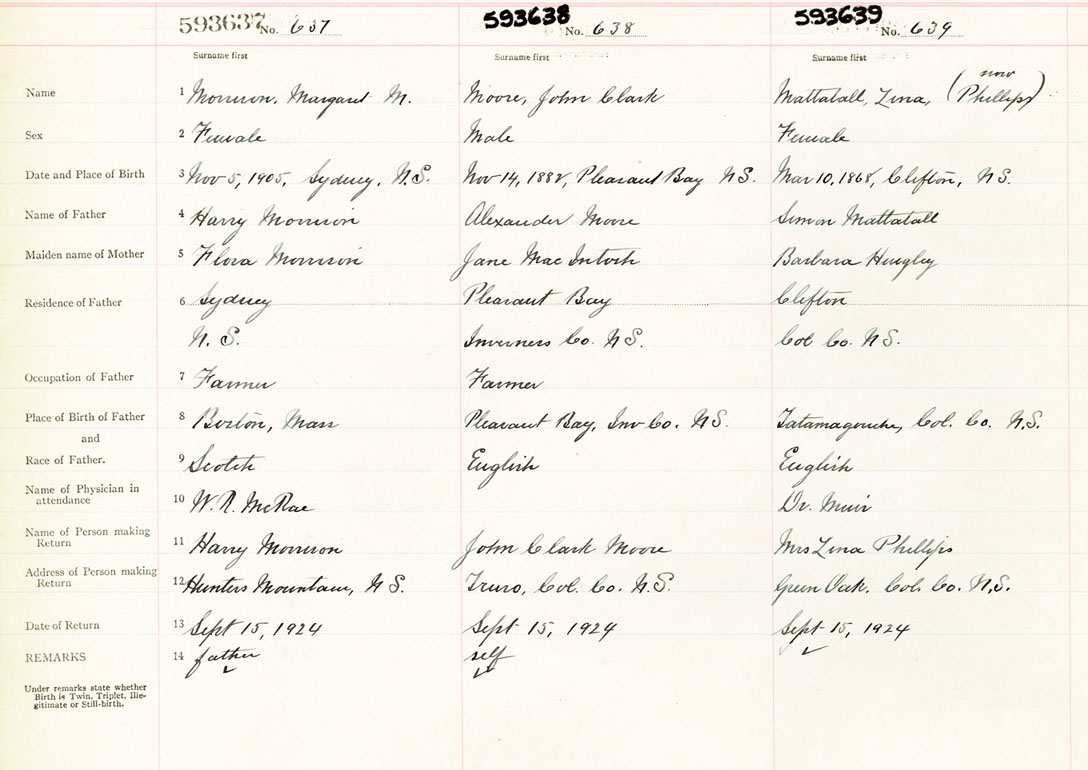 593637 No. 637 593638 No. 638 593639 No. 639
Surname first Surname first Surname first
now
Name 1 Morrison, Margaret M. Moore, John Clark Mattatall, Zina, (Phillips)
Sex 2 Female Male Female
Date and Place of Birth 3 Nov 5, 1905, Sydney, N.S. Nov 14, 1888, Pleasant Bay N S. Mar 10, 1868, Clifton, N S.
Name of Father 4 Harry Morrison Alexander Moore Simon Mattatall
Maiden name of Mother 5 Flora Morrison Jane Mac Intosh Barbara
Residence of Father 6 Sydney Pleasant Bay Clifton
N. S. Inverness Co. N S. Col Co. N S.
Occupation of Father 7 Farmer Farmer
Place of Birth of Father 8 Boston, Mass Pleasant Bay, Inv Co. N S. Tatamagouche, Col. Co. N.S.
and
Race of Father. 9 Scotch English English
Name of Physician in
attendance 10 W. R. McRae Dr. Muir
Name of Person making
Return 11 Harry Morrison John Clark Moore Mrs Zina Phillips
Address of Person making
Return 12 Hunters Mountain, N S. Truro, Col. Co. N.S. Green Oak, Col. Co. N.S.
Date of Return 13 Sept 15, 1924 Sept 15, 1924 Sept 15, 1924
REMARKS 14 father self
Under remarks state whether
Birth is Twin, Triplet, Ille-
gitimate or Still-birth.